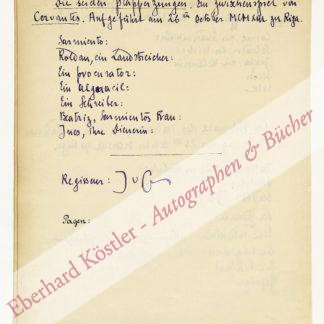 Die beiden Plapperzungen. Ein Zwischenspiel von
Cervantes. Aufgeführt am 26ten October zu Riga.
Sarmiento:
Roldan, ein Landstreicher:
Ein Procurator:
Ein Algoracil:
Ein Schreiber:
Beatriz, Sarmientos Frau:
Ines, ihre Dienerin:
Regisseur:
Pagen:
Eberhard Köstler - Autographen & Bücher